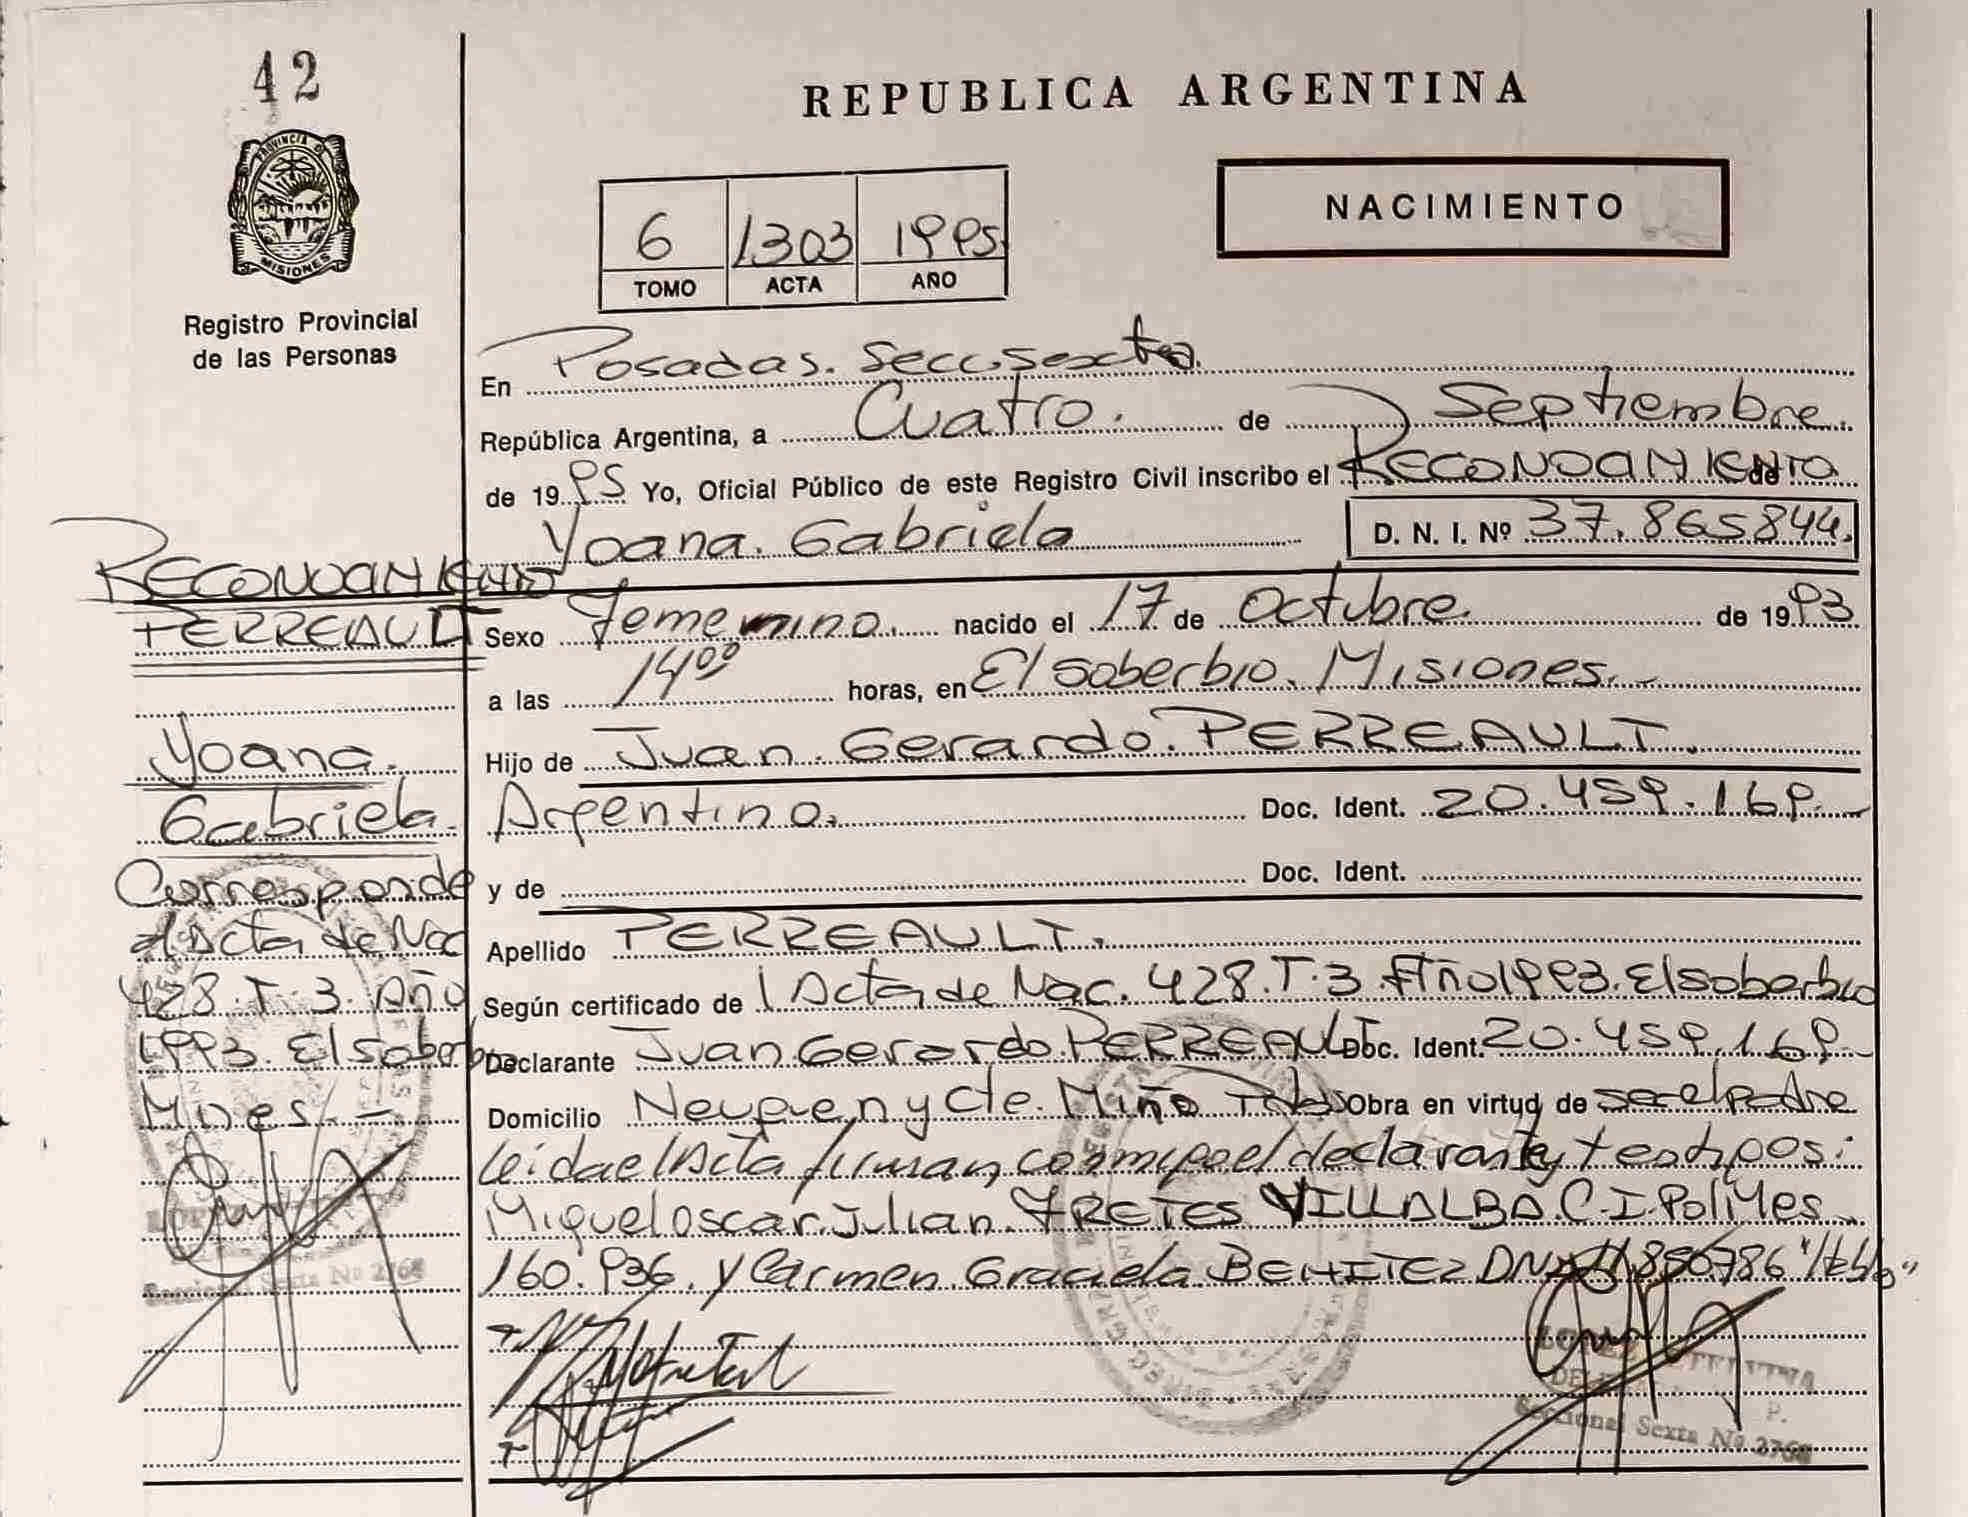 42
PROVINCIA DE
MISIONES
Registro Provincial
de las Personas
RECONOCIMIENTO
PERREAULT
Yoana.
Gabriela.
Corresponde
al Acta de Nac
428. T. 3. Año
1993. El soberbio
Mnes. -
Seccional Sexta Nº 2768
REPUBLICA ARGENTINA
NACIMIENTO
6 1303 1995
TOMO ACTA AÑO
En Posadas. Secc. Sexta.
República Argentina, a Cuatro. de Septiembre.
de 1995 Yo, Oficial Público de este Registro Civil inscribo el RECONOCIMIENTO de
Yoana. Gabriela D. N. I. Nº 37.865844.
Sexo Femenino. nacido el 17 de Octubre. de 1993
a las 14⁰⁰ horas, en El soberbio. Misiones. -
Hijo de Juan. Gerardo. PERREAULT.
Argentino. Doc. Ident. 20.459.169. -
y de Doc. Ident.
Apellido PERREAULT.
Según certificado de l Acta de Nac. 428. T. 3. Año 1993. El soberbio
Declarante Juan Gerardo. PERREAULT Doc. Ident. 20.459.169. -
Domicilio Neuquen y Cte. Miño Pdas Obra en virtud de ser el padre
leida el Acta firman, conmigo el declarante y testigos:
Miguel oscar. Julian. FRETES VILLALBA. C. I. Pol Mes
160.936. y Carmen. Graciela BENITEZ DNI 11856786
Seccional Sexta Nº 2768